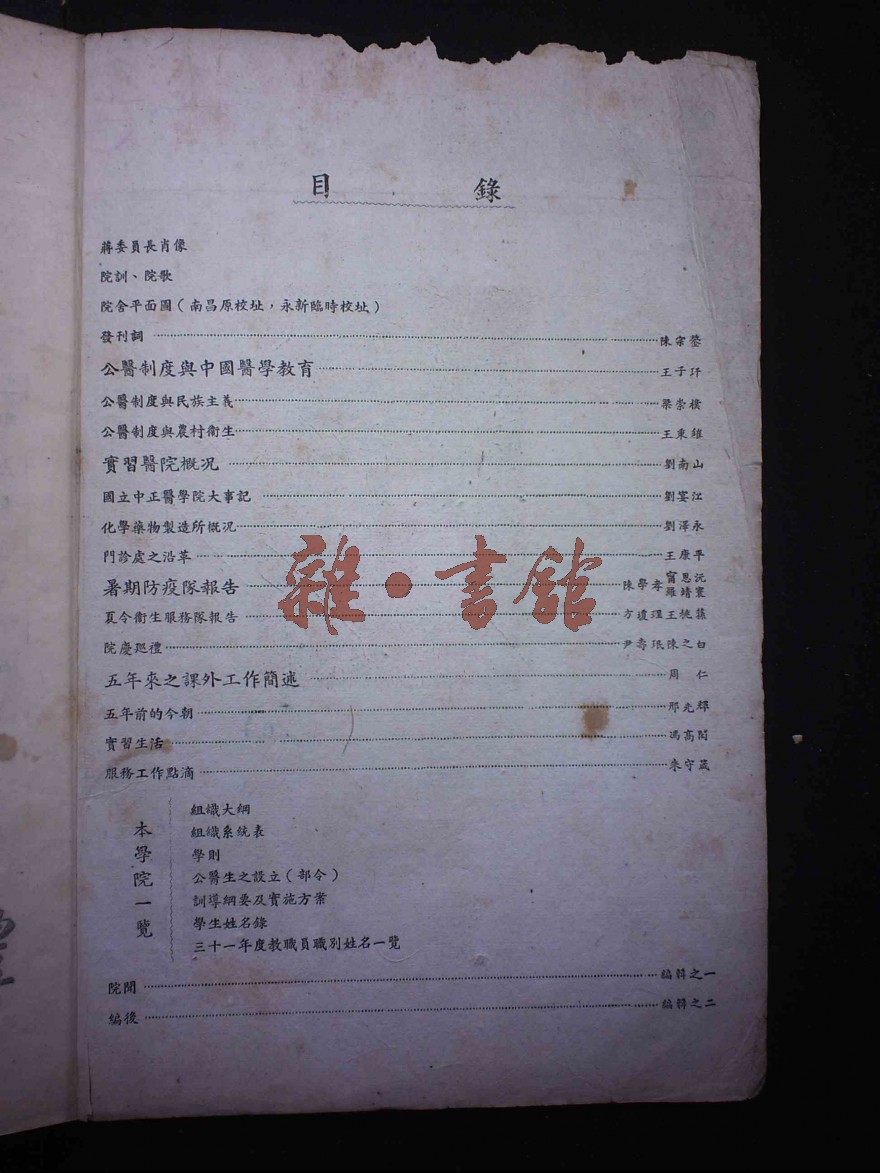 目錄
蔣委員長肖像
院訓、院歌
院舍平面圖(南昌原校址,永新臨時校址)
發刊詞 陳宗鎣
公醫制度與中國醫學教育 王子玕
公醫制度與民族主義 梁崇樸
公醫制度與農村衛生 王秉維
實習醫院概況 劉南山
國立中正醫學院大事記 劉宴江
化學藥物製造所概況 劉澤永
門診處之沿革 王康平
暑期防疫隊報告 陳學孝 甯思沅 羅靖寰
夏令衛生服務隊報告 方瓊 王桃蓀
院慶廵禮 尹壽珉陳之白
五年來之課外工作簡述 周仁
五年前的今朝 邢光輝
實習生活 馮高閎
服務工作點滴 朱守葳
本學院一覽
組織大綱
組織系統表
學則
公醫生之設立(部令)
訓導綱要及實施方案
學生姓名錄
三十一年度教職員職別姓名一覽
院聞 編輯之一
編後 編輯之二
雜·書館